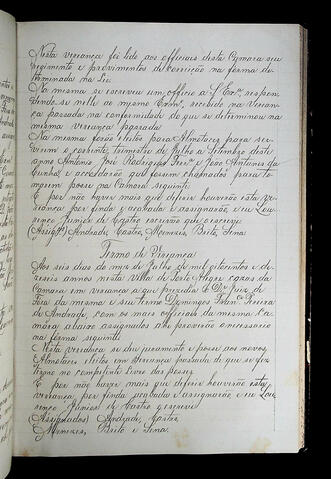 Nesta veriança foi lido aos officiais desta Camara seu
regimento e provimentos de correição na forma de
terminada na Lei
Na mesma se escreveu um officio a S. Exª. respon
dendo-se nelle ao mesmo Exmº. recebido na Verian
ça passada na conformidade do que se determinou na
mesma veriança passada
Na mesma forão eleitos para Almotaces para ser
virem o corrente trimestre de Julho a Setembro deste
anno Antonio José Rodrigues e João Antunes da
Cunha, e accordarão que fossem chamados para to
marem posse na Camara siguinte
E por não haver mais que diferir houverão esta ve
riança por finda e acabada e assignarão, e eu Lou
renço Junior de Castro escrivão que o escrevi
(Assigdºs) Andrade, Castro, Menezes, Brito, Sena.
Termo de Veriança
Aos seis dias do mez de Julho de mil oitocentos e de
zeseis annos nesta Villa de Porto Alegre cazas da
Camara em veriança a que prezidio o Dr. Juiz de
Fora da mesma e seu termo Domingos Franco. Pereira
de Andrade, com os mais officiais da mesma Ca
mara abaixo assignados ahi proverão o necessario
na forma siguinte
Nesta veriança se deu juramento e posse aos novos
Almotaces eleitos em veriança passada de que se fez
termo no competente Livro das posses
E por não haver mais que diferir houverão esta
veriança por finda acabada e assignarão e eu Lou
renço Junior de Castro o escrevi
(Assignados) Andrade, Castro
Menezes, Brito e Sena.